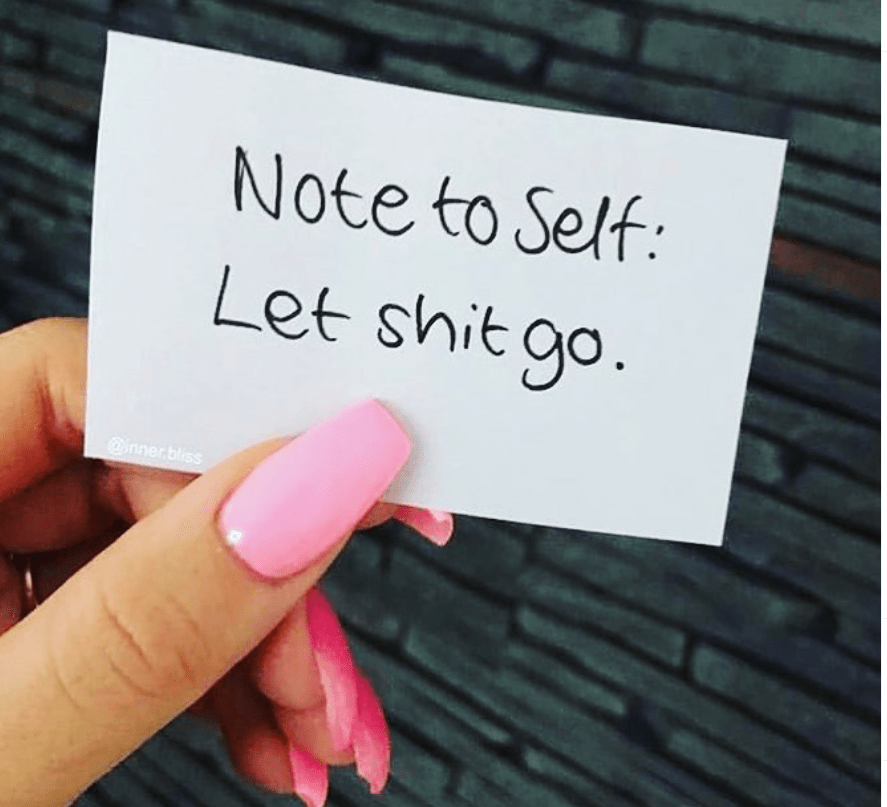 Note to Self:
Let shit go.
@inner.bliss